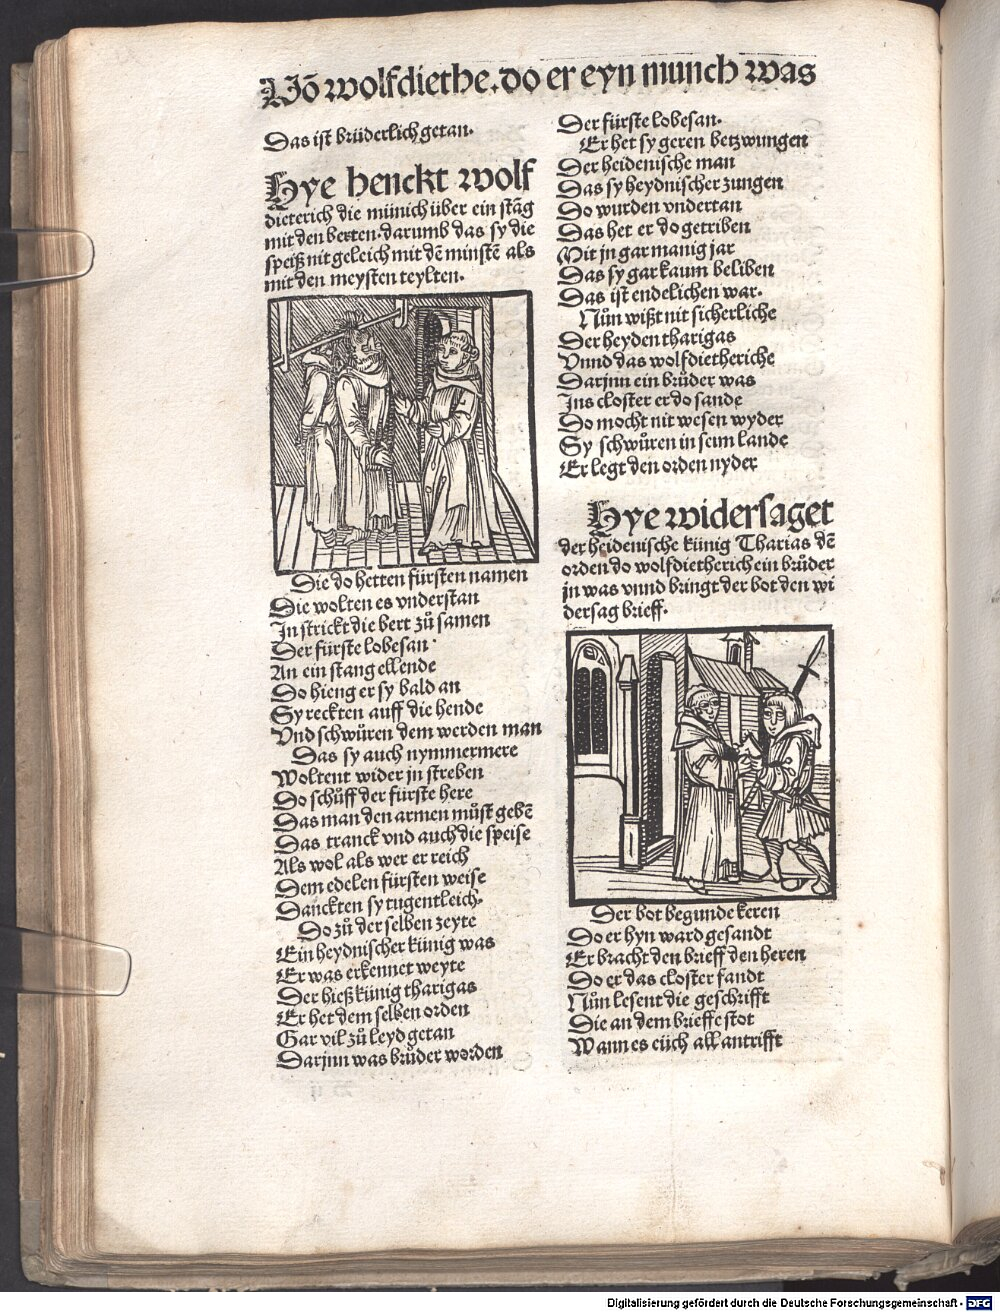 Uō wolfdiethe. do er eyn munch was
Das ist brüderlich getan.
Hye henckt wolf
dieterich die münich über ein stāg
mit den berten. darumb das sy die
speiß nit geleich mit dē minstē als
mit den meysten teylten.
Die do hetten fürsten namen
Die wolten es vnderstan
In strickt die bert zů samen
Der fürste lobesan
An ein stang ellende
Do hieng er sy bald an
Sy reckten auff die hende
Vnd schwůren dem werden man
Das sy auch nymmermere
Woltent wider jn streben
Do schůff der fürste here
Das man den armen můst gebē
Das tranck vnd auch die speise
Als wol als wer er reich
Dem edelen fürsten weise
Danckten sy tugentleich.
Do zů der selben zeyte
Ein heydnischer künig was
Er was erkennet weyte
Der hieß künig tharigas
Er het dem selben orden
Gar vil zů leyd getan
Darjnn was brůder worden
Der fürste lobesan.
Er het sy geren betzwungen
Der heidenische man
Das sy heydnischer zungen
Do wurden vndertan
Das het er do getriben
Mit jn gar manig jar
Das sy gar kaum beliben
Das ist endelichen war.
Nůn wißt nit sicherliche
Der heyden tharigas
Vnnd das wolfdietheriche
Darjnn ein brůder was
Ins closter er do sande
Do mocht nit wesen wyder
Sy schwůren in seim lande
Er legt den orden nyder
Hye widersaget
der heidenische künig Tharias dē
orden do wolfdietherich ein brůder
jn was vnnd bringt der bot den wi
dersag brieff.
Der bot begunde keren
Do er hyn ward gesandt
Er bracht den brieff den heren
Do er das closter fandt
Nůn lesent die geschrifft
Die an dem brieffe stot
Wann es eüch all antrifft
Digitalisierung gefördert durch die Deutsche Forschungsgemeinschaft - DFG